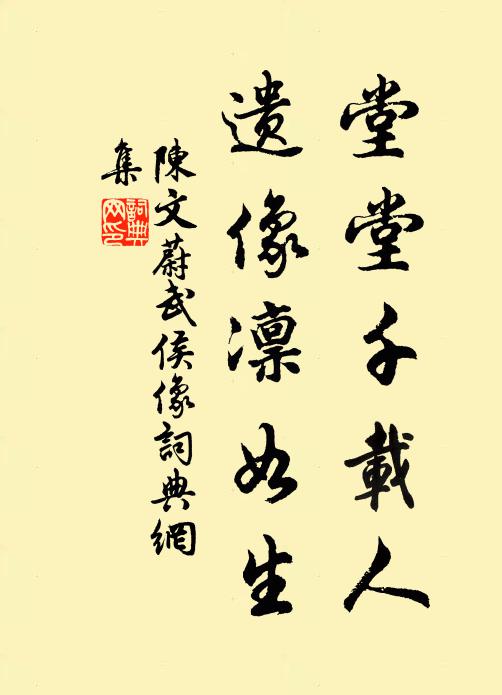 堂堂千載人
遺像凛如生
陳文蔚武侯像詞典網
集
詞典網印